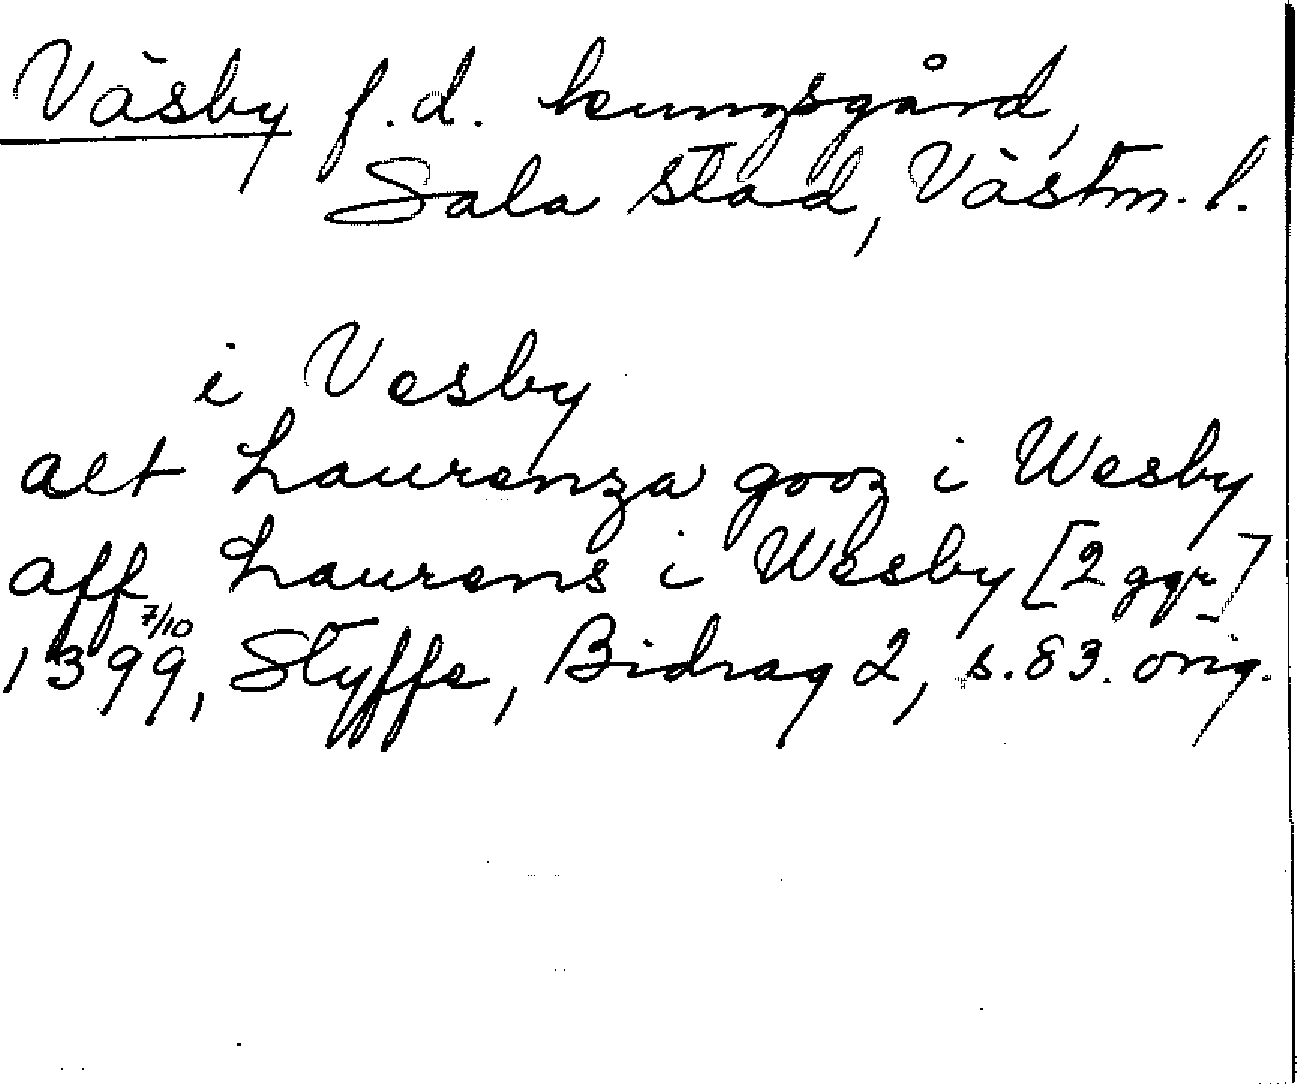 Väsby f.d. kungsgård,
Sala stad, Västm. l.
i Vesby
alt Laurenza gooz i Wesby
aff Laurens i Wesby [2 ggr]
1399 7/10, Styffe, Bidrag 2, s. 83. orig.